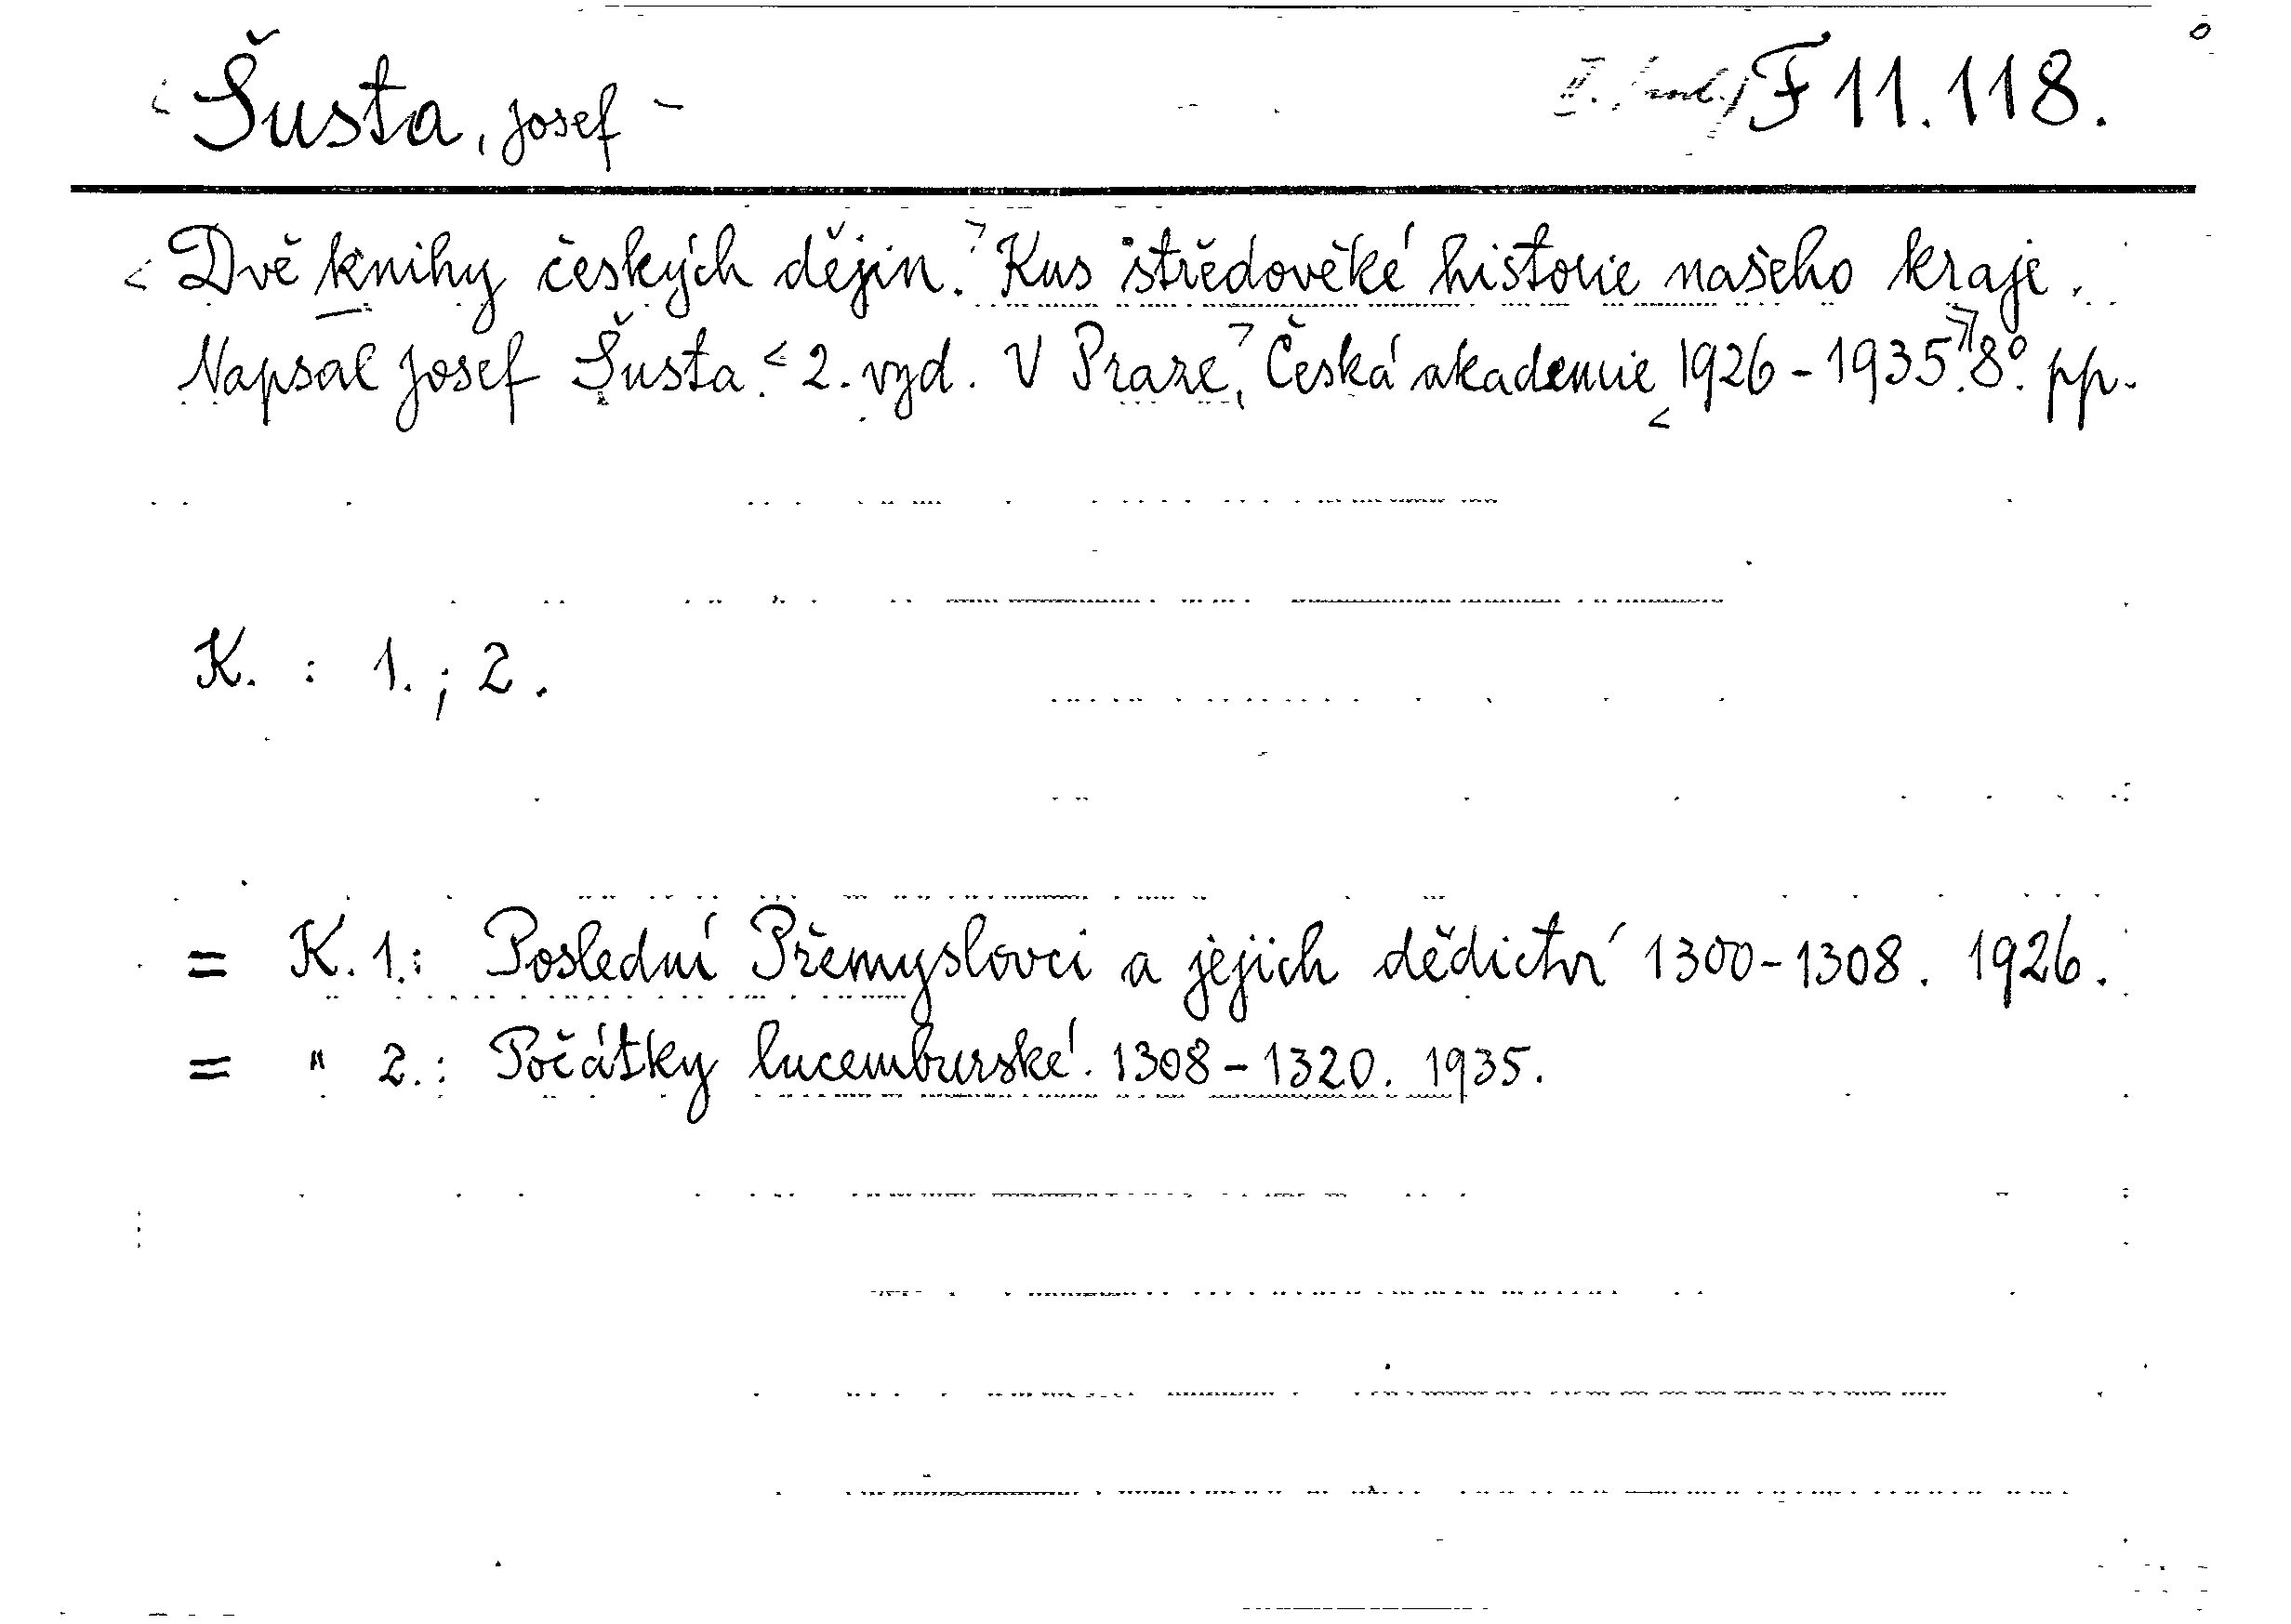 Šusta, Josef F 11.118.
Dvě knihy českých dějin. Kus středověké historie našeho kraje.
Napsal Josef Šusta. 2. vyd. V Praze, Česká akademie 1926-1935. 8°. pp.
K. : 1. ; 2.
= K. 1.: Poslední Přemyslovci a jejich dědictví 1300-1308. 1926.
= " 2.: Počátky lucemburské. 1308-1320. 1935.